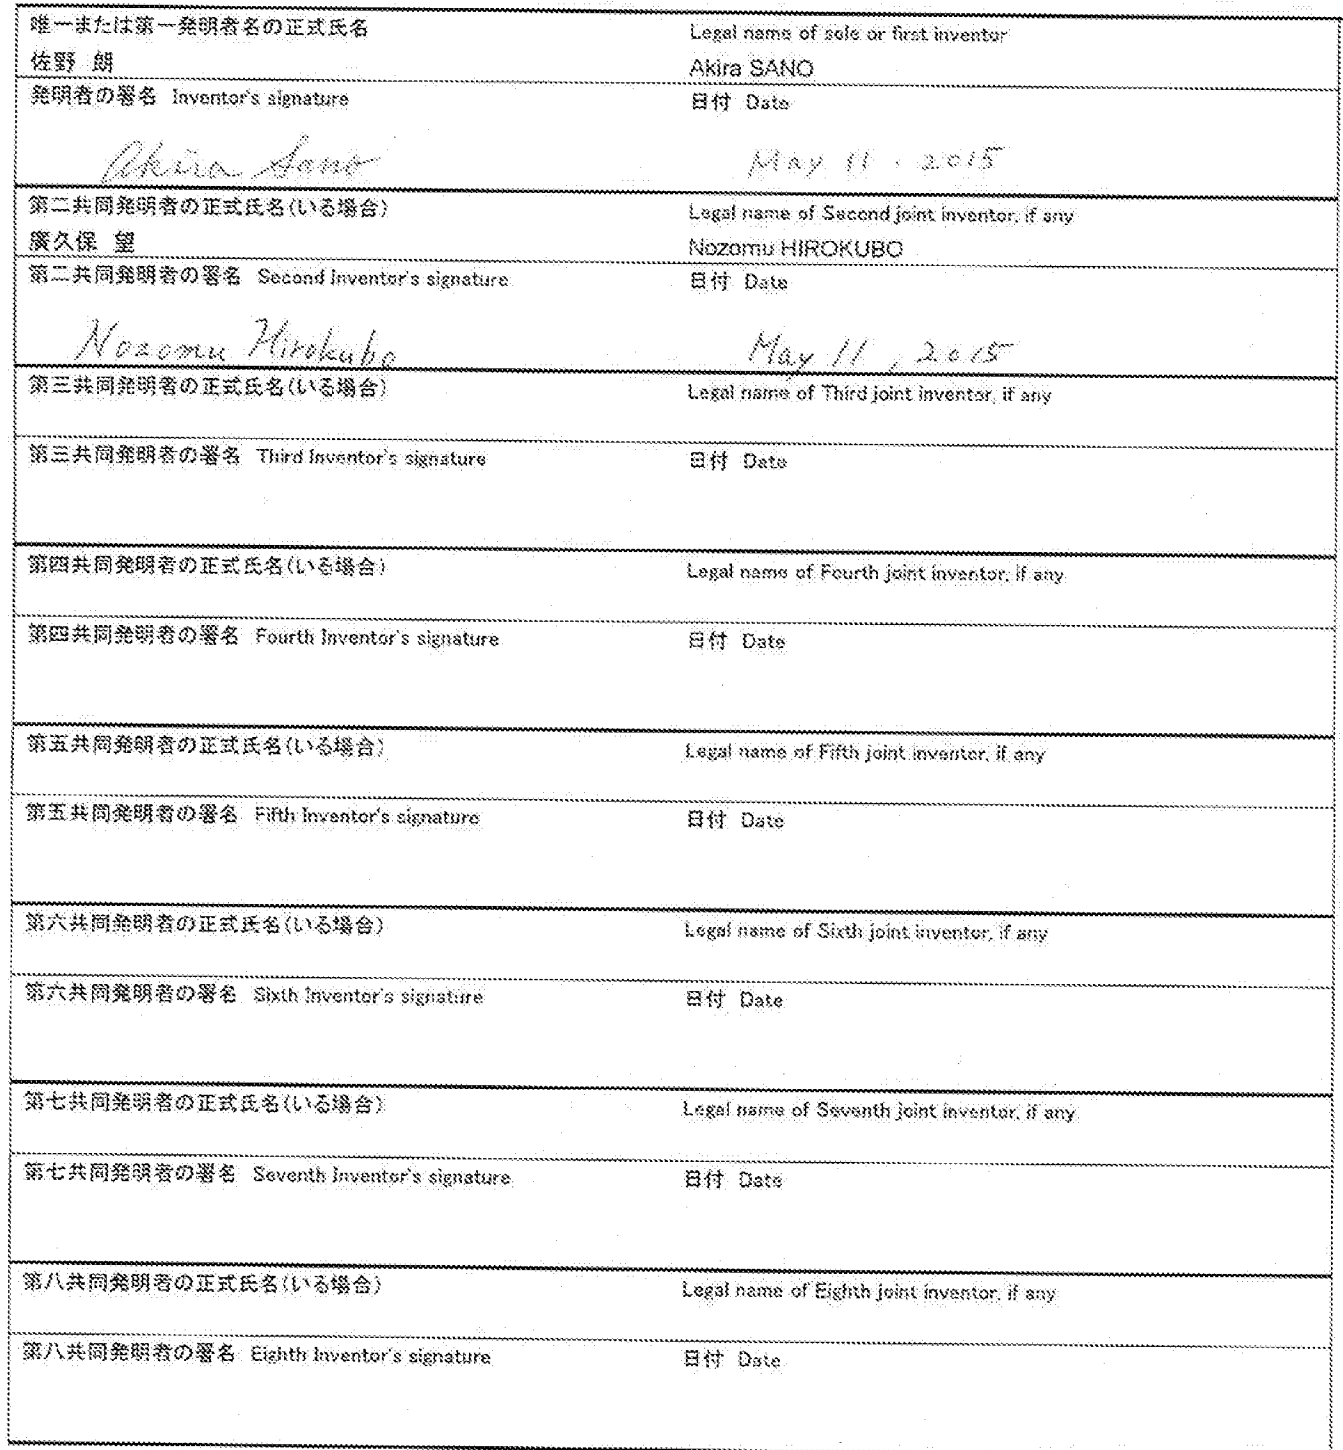 唯一または第一発明者名の正式氏名 Legal name of sole or first inventor
佐野 朗 Akira SANO
発明者の署名 Inventor's signature 日付 Date
Akira Sano May 11. 2015
第二共同発明者の正式氏名(いる場合) Legal name of Second joint inventor, if any
廣久保 望 Nozomu HIROKUBO
第二共同発明者の署名 Second Inventor's signature 日付 Date
Nozomu Hirokubo May 11, 2015
第三共同発明者の正式氏名(いる場合) Legal name of Third joint inventor, if any
第三共同発明者の署名 Third Inventor's signature 日付 Date
第四共同発明者の正式氏名(いる場合) Legal name of Fourth joint inventor, if any
第四共同発明者の署名 Fourth Inventor's signature 日付 Date
第五共同発明者の正式氏名(いる場合) Legal name of Fifth joint inventor, if any
第五共同発明者の署名 Fifth Inventor's signature 日付 Date
第六共同発明者の正式氏名(いる場合) Legal name of Sixth joint inventor, if any
第六共同発明者の署名 Sixth Inventor's signature 日付 Date
第七共同発明者の正式氏名(いる場合) Legal name of Seventh joint inventor, if any
第七共同発明者の署名 Seventh Inventor's signature 日付 Date
第八共同発明者の正式氏名(いる場合) Legal name of Eighth joint inventor, if any
第八共同発明者の署名 Eighth Inventor's signature 日付 Date